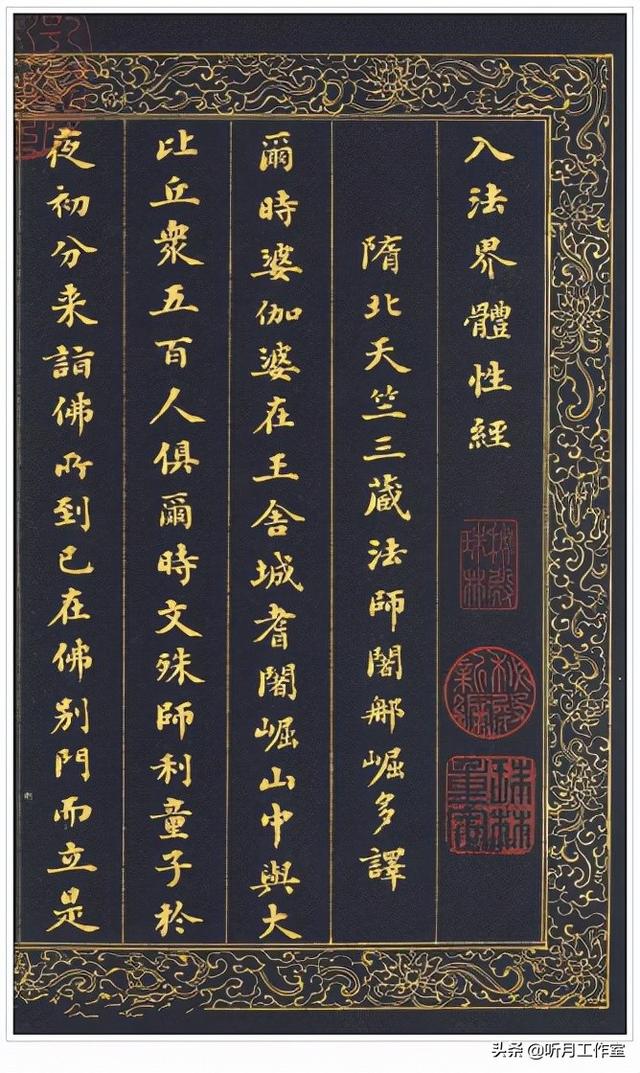 入法界體性經
隋北天竺三藏法師闍那崛多譯
爾時婆伽婆在王舍城耆闍崛山中與大
比丘衆五百人俱爾時文殊師利童子於
夜初分来詣佛所到已在佛別門而立是
秘殿珠林
秘殿新編
珠林重定
头条@听月工作室